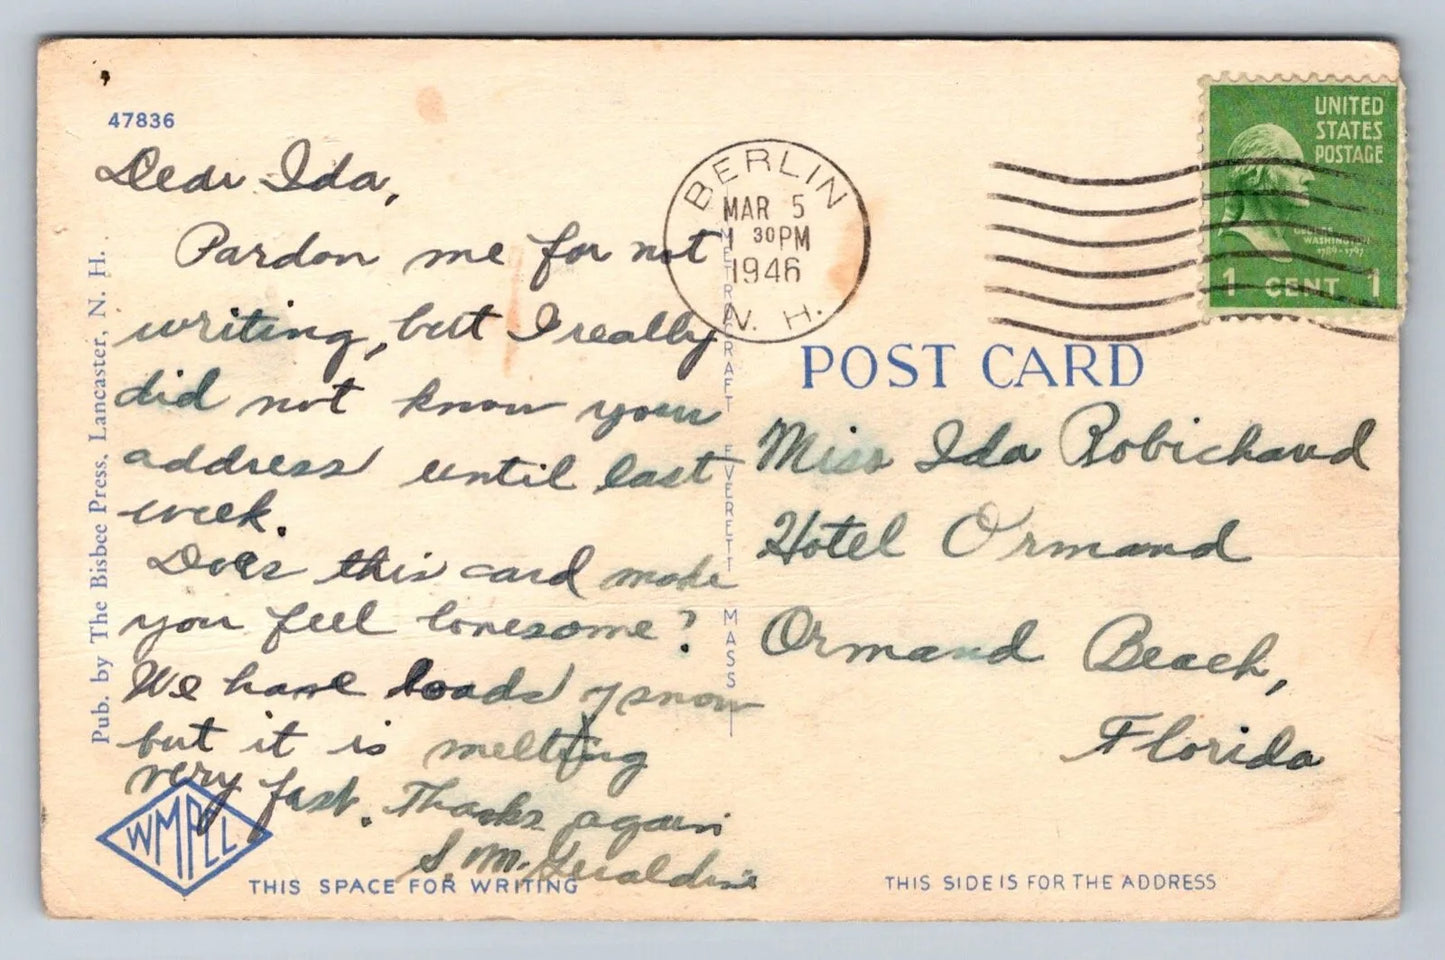 47836
Dear Ida,
Pardon me for not
writing, but I really
did not know your
address until last
week.
Does this card make
you feel lonesome?
We have loads of snow
but it is melting
very fast. Thanks again
S. M. Geraldine
Pub. by The Bisbee Press, Lancaster, N. H.
WMPCL
THIS SPACE FOR WRITING
METROCRAFT EVERETT MASS
BERLIN
MAR 5
1 30 PM
1946
N. H.
UNITED
STATES
POSTAGE
WASHINGTON
1789-1797
1 CENT 1
POST CARD
Miss Ida Robichaud
Hotel Ormand
Ormand Beach,
Florida
THIS SIDE IS FOR THE ADDRESS